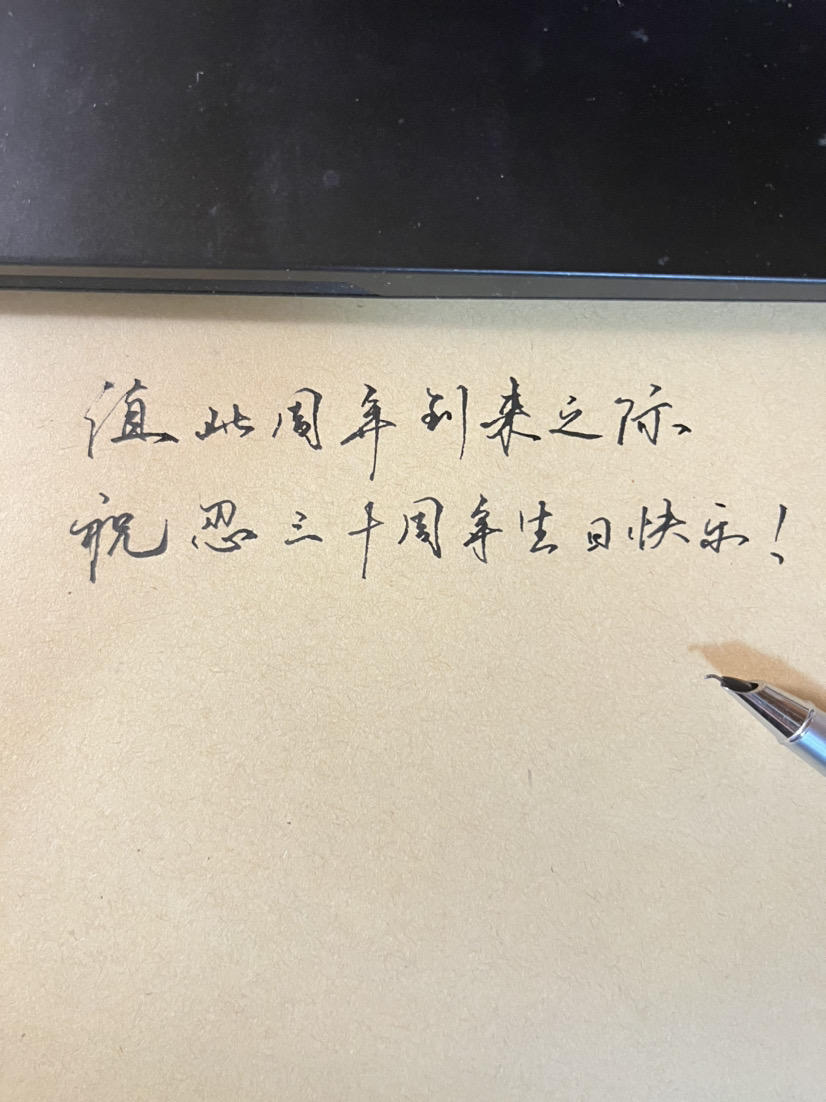 值此周年到来之际
祝忍三十周年生日快乐！